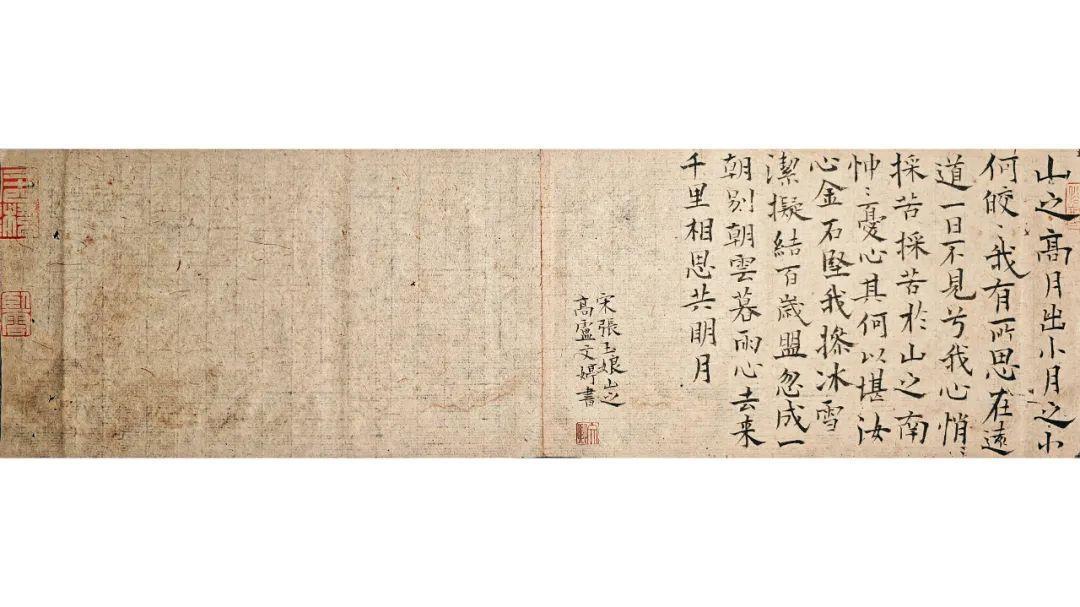 山之高月出小月之小
何皎〻我有所思在遠
道一日不見兮我心悄〻
採苦採苦於山之南
忡〻憂心其何以堪汝
心金石堅我操冰雪
潔擬結百歲盟忽成一
朝别朝雲暮雨心去来
千里相思共明月
宋張玉娘山之
高盧文婷書